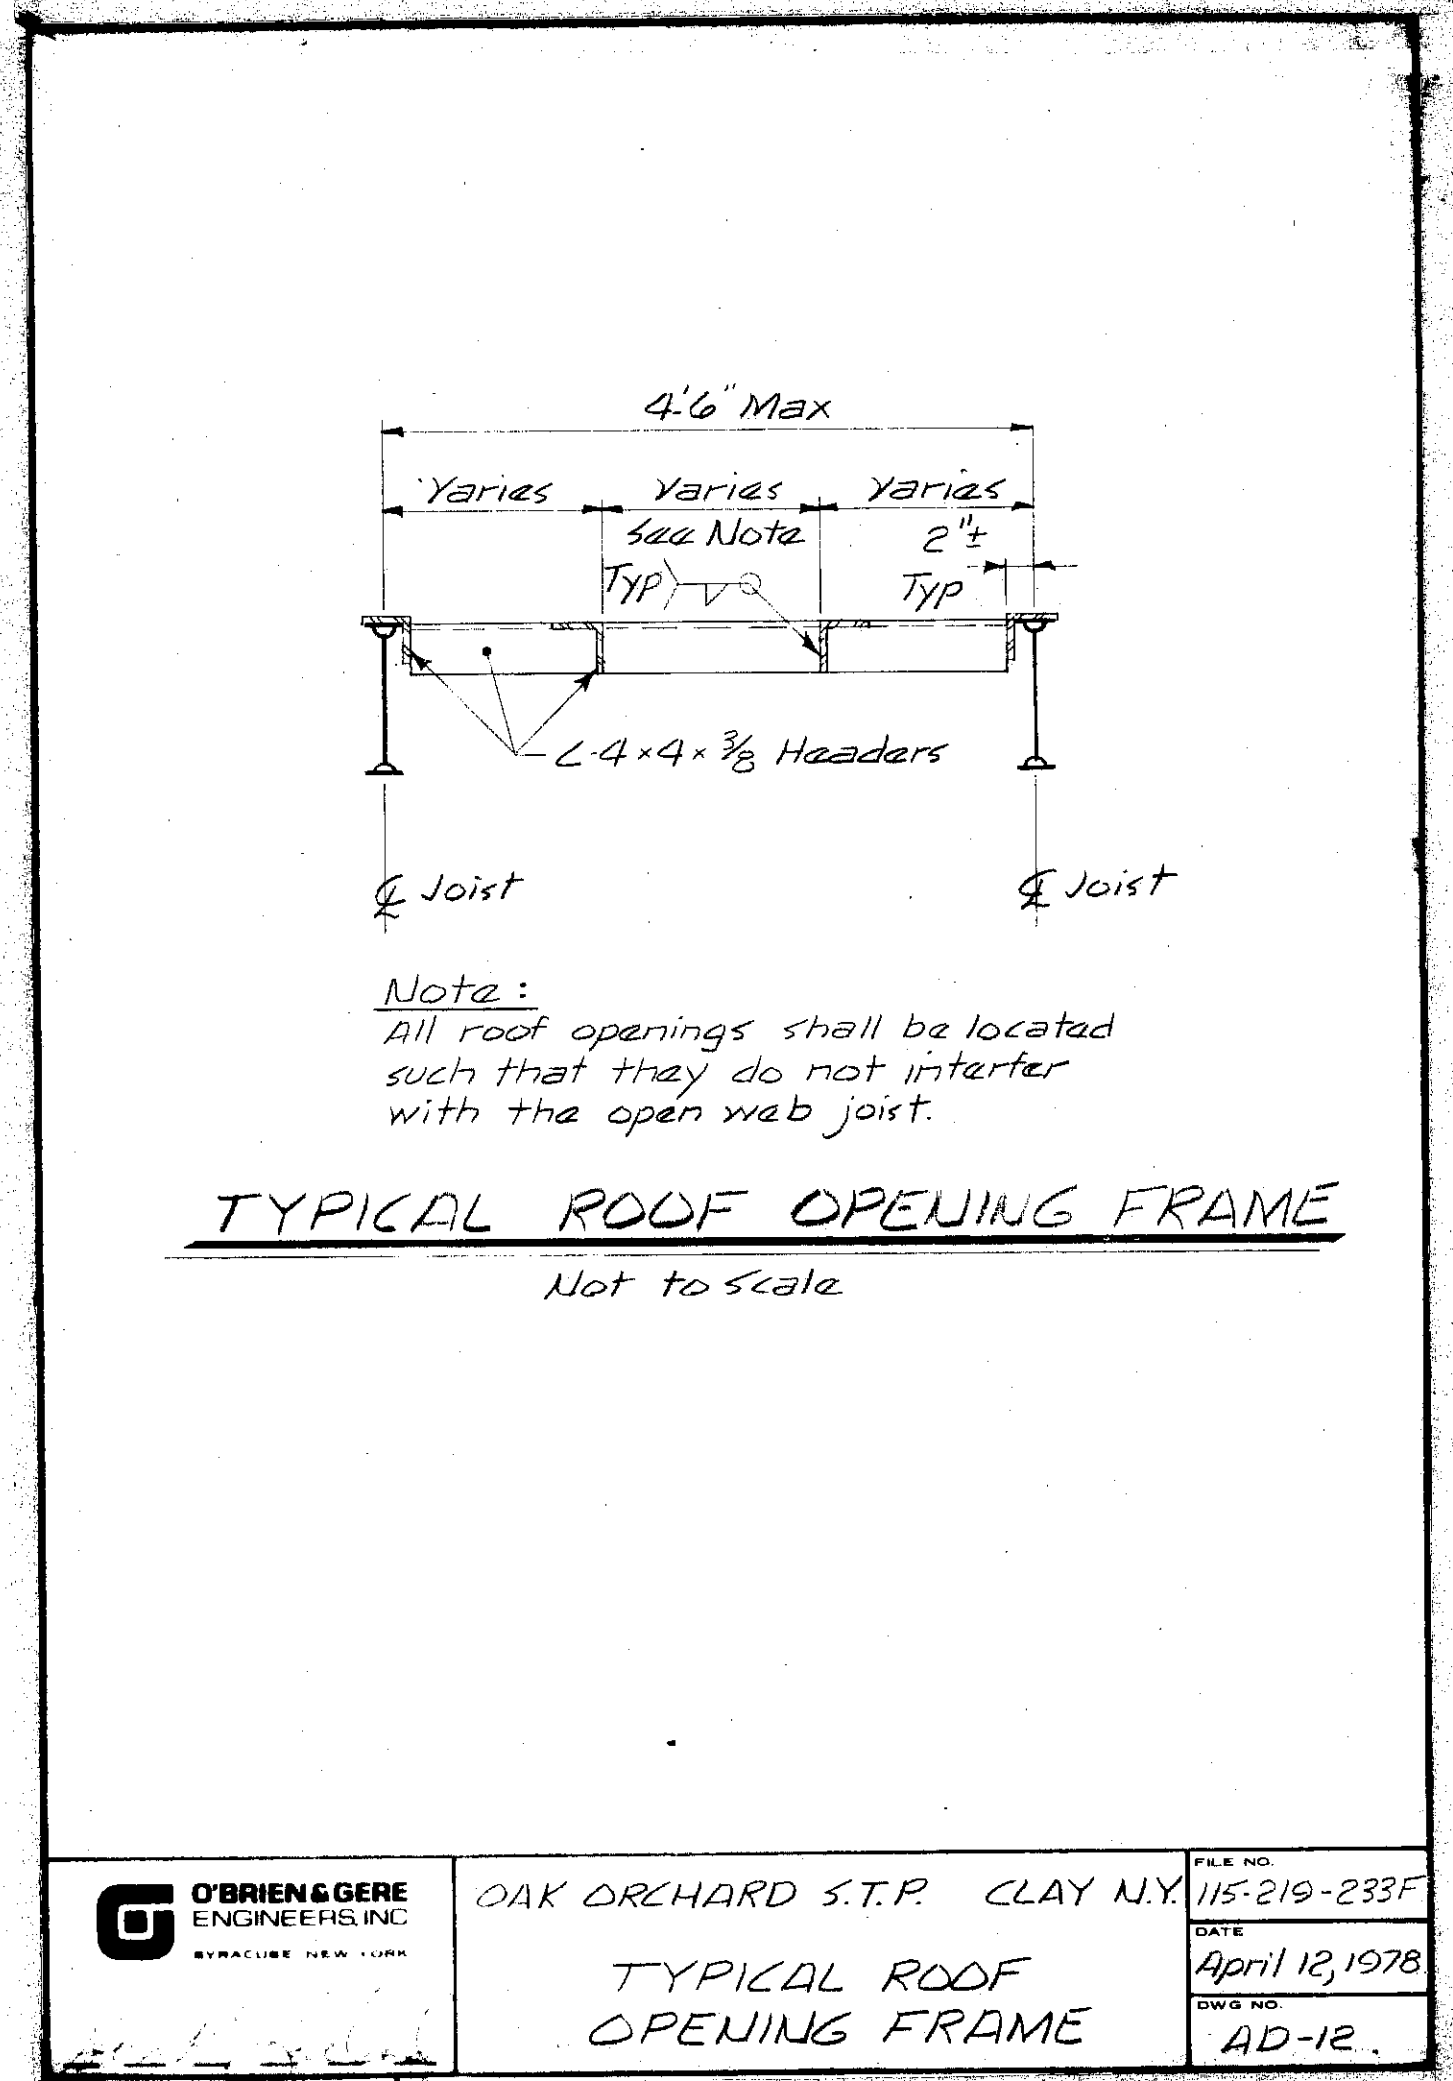 4'-6" Max
Varies Varies Varies
See Note 2"±
Typ Typ
L-4×4×3/8 Headers
℄ Joist ℄ Joist
Note:
All roof openings shall be located
such that they do not interfer
with the open web joist.
TYPICAL ROOF OPENING FRAME
Not to Scale
O'BRIEN & GERE
ENGINEERS, INC
SYRACUSE NEW YORK
OAK ORCHARD S.T.P. CLAY N.Y.
TYPICAL ROOF
OPENING FRAME
FILE NO.
115-219-233F
DATE
April 12, 1978
DWG NO.
AD-12.